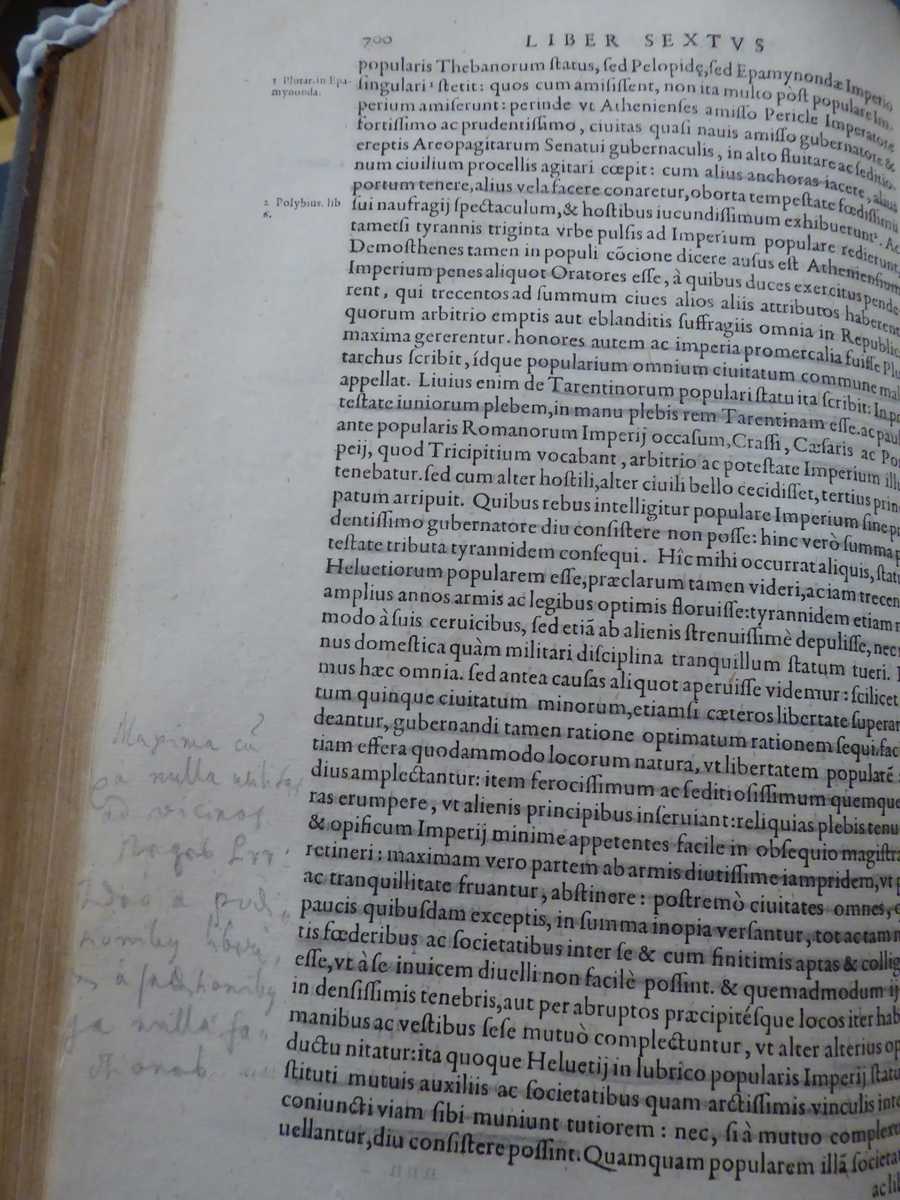 700 LIBER SEXTVS
popularis Thebanorum ſtatus, ſed Pelopidę, ſed Epamynondæ Imperio
1 Plutar. in Epa-
mynonda.
ſingulari¹ ſtetit: quos cum amiſiſſent, non ita multo pòſt populare Im-
perium amiſerunt: perinde vt Athenienſes amiſſo Pericle Imperatore
fortiſſimo ac prudentiſſimo, ciuitas quaſi nauis amiſſo gubernatore &
ereptis Areopagitarum Senatui gubernaculis, in alto fluitare ac ſeditio-
num ciuilium procellis agitari cœpit: cum alius anchoras iacere, alius
portum tenere, alius vela facere conaretur, oborta tempeſtate fœdiſſimũ
2 Polybius. lib
6.
ſui naufragij ſpectaculum, & hoſtibus iucundiſſimum exhibuerunt². Ac
tametſi tyrannis triginta vrbe pulſis ad Imperium populare redierunt,
Demoſthenes tamen in populi cõcione dicere auſus eſt Athenienſium
Imperium penes aliquot Oratores eſſe, à quibus duces exercitus pende
rent, qui trecentos ad ſummum ciues alios aliis attributos haberent
quorum arbitrio emptis aut eblanditis ſuffragiis omnia in Republic
maxima gererentur. honores autem ac imperia promercalia fuiſſe Plu
tarchus ſcribit, ídque popularium omnium ciuitatum commune mal
appellat. Liuius enim de Tarentinorum populari ſtatu ita ſcribit: In po
teſtate iuniorum plebem, in manu plebis rem Tarentinam eſſe. ac paul
ante popularis Romanorum Imperij occaſum, Craſſi, Cæſaris ac Po
peij, quod Tricipitium vocabant, arbitrio ac poteſtate Imperium ill
tenebatur. ſed cum alter hoſtili, alter ciuili bello cecidiſſet, tertius prin
patum arripuit. Quibus rebus intelligitur populare Imperium ſine p
dentiſſimo gubernatore diu conſiſtere non poſſe: hinc verò ſumma p
teſtate tributa tyrannidem conſequi. Hîc mihi occurrat aliquis, ſtat
Heluetiorum popularem eſſe, præclarum tamen videri, ac iam trecen
amplius annos armis ac legibus optimis floruiſſe: tyrannidem etiam n
modo à ſuis ceruicibus, ſed etiã ab alienis ſtrenuiſſimè depuliſſe, nec
nus domeſtica quàm militari diſciplina tranquillum ſtatum tueri.
mus hæc omnia. ſed antea cauſas aliquot aperuiſſe videmur: ſcilicet
tum quinque ciuitatum minorum, etiamſi cæteros libertate ſuperar
deantur, gubernandi tamen ratione optimatum rationem ſequi. fac
tiam effera quodammodo locorum natura, vt libertatem populatẽ
dius amplectantur: item ferociſſimum ac ſeditioſiſſimum quemque
ras erumpere, vt alienis principibus inſeruiant: reliquias plebis tenu
& opificum Imperij minime appetentes facile in obſequio magiſtra
retineri: maximam vero partem ab armis diutiſſime iampridem, vt
ac tranquillitate fruantur, abſtinere: poſtremò ciuitates omnes,
paucis quibuſdam exceptis, in ſumma inopia verſantur, tot ac tam
tis fœderibus ac ſocietatibus inter ſe & cum finitimis aptas & collig
eſſe, vt à ſe inuicem diuelli non facilè poſſint. & quemadmodum ij
in denſiſſimis tenebris, aut per abruptos præcipitéſque locos iter hab
manibus ac veſtibus ſeſe mutuò complectuntur, vt alter alterius op
ductu nitatur: ita quoque Heluetij in lubrico popularis Imperij ſtatu
ſtituti mutuis auxiliis ac ſocietatibus quam arctiſſimis vinculis inte
coniuncti viam ſibi muniunt tutiorem: nec, ſi à mutuo complexu
uellantur, diu conſiſtere poſſint. Quamquam popularem illã ſocietat
ac lib
Maxima
nulla
vicinos